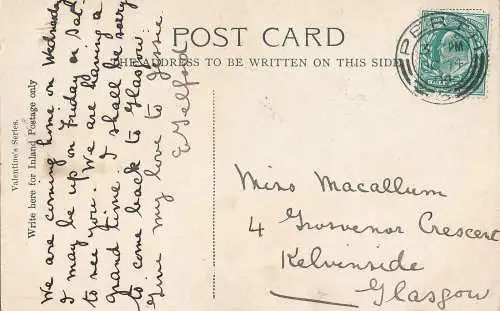 POST CARD
THE ADDRESS TO BE WRITTEN ON THIS SIDE
Valentine's Series.
Write here for Inland Postage only
We are coming home on Wednesday
I may be up on Friday or Sat.
to see you. We are having a
grand time. I shall be sorry
to come back to Glasgow.
Give my love to Jessie
E Telford
PERTH
PM
Miss Macallum
4 Grosvenor Crescent
Kelvinside
Glasgow